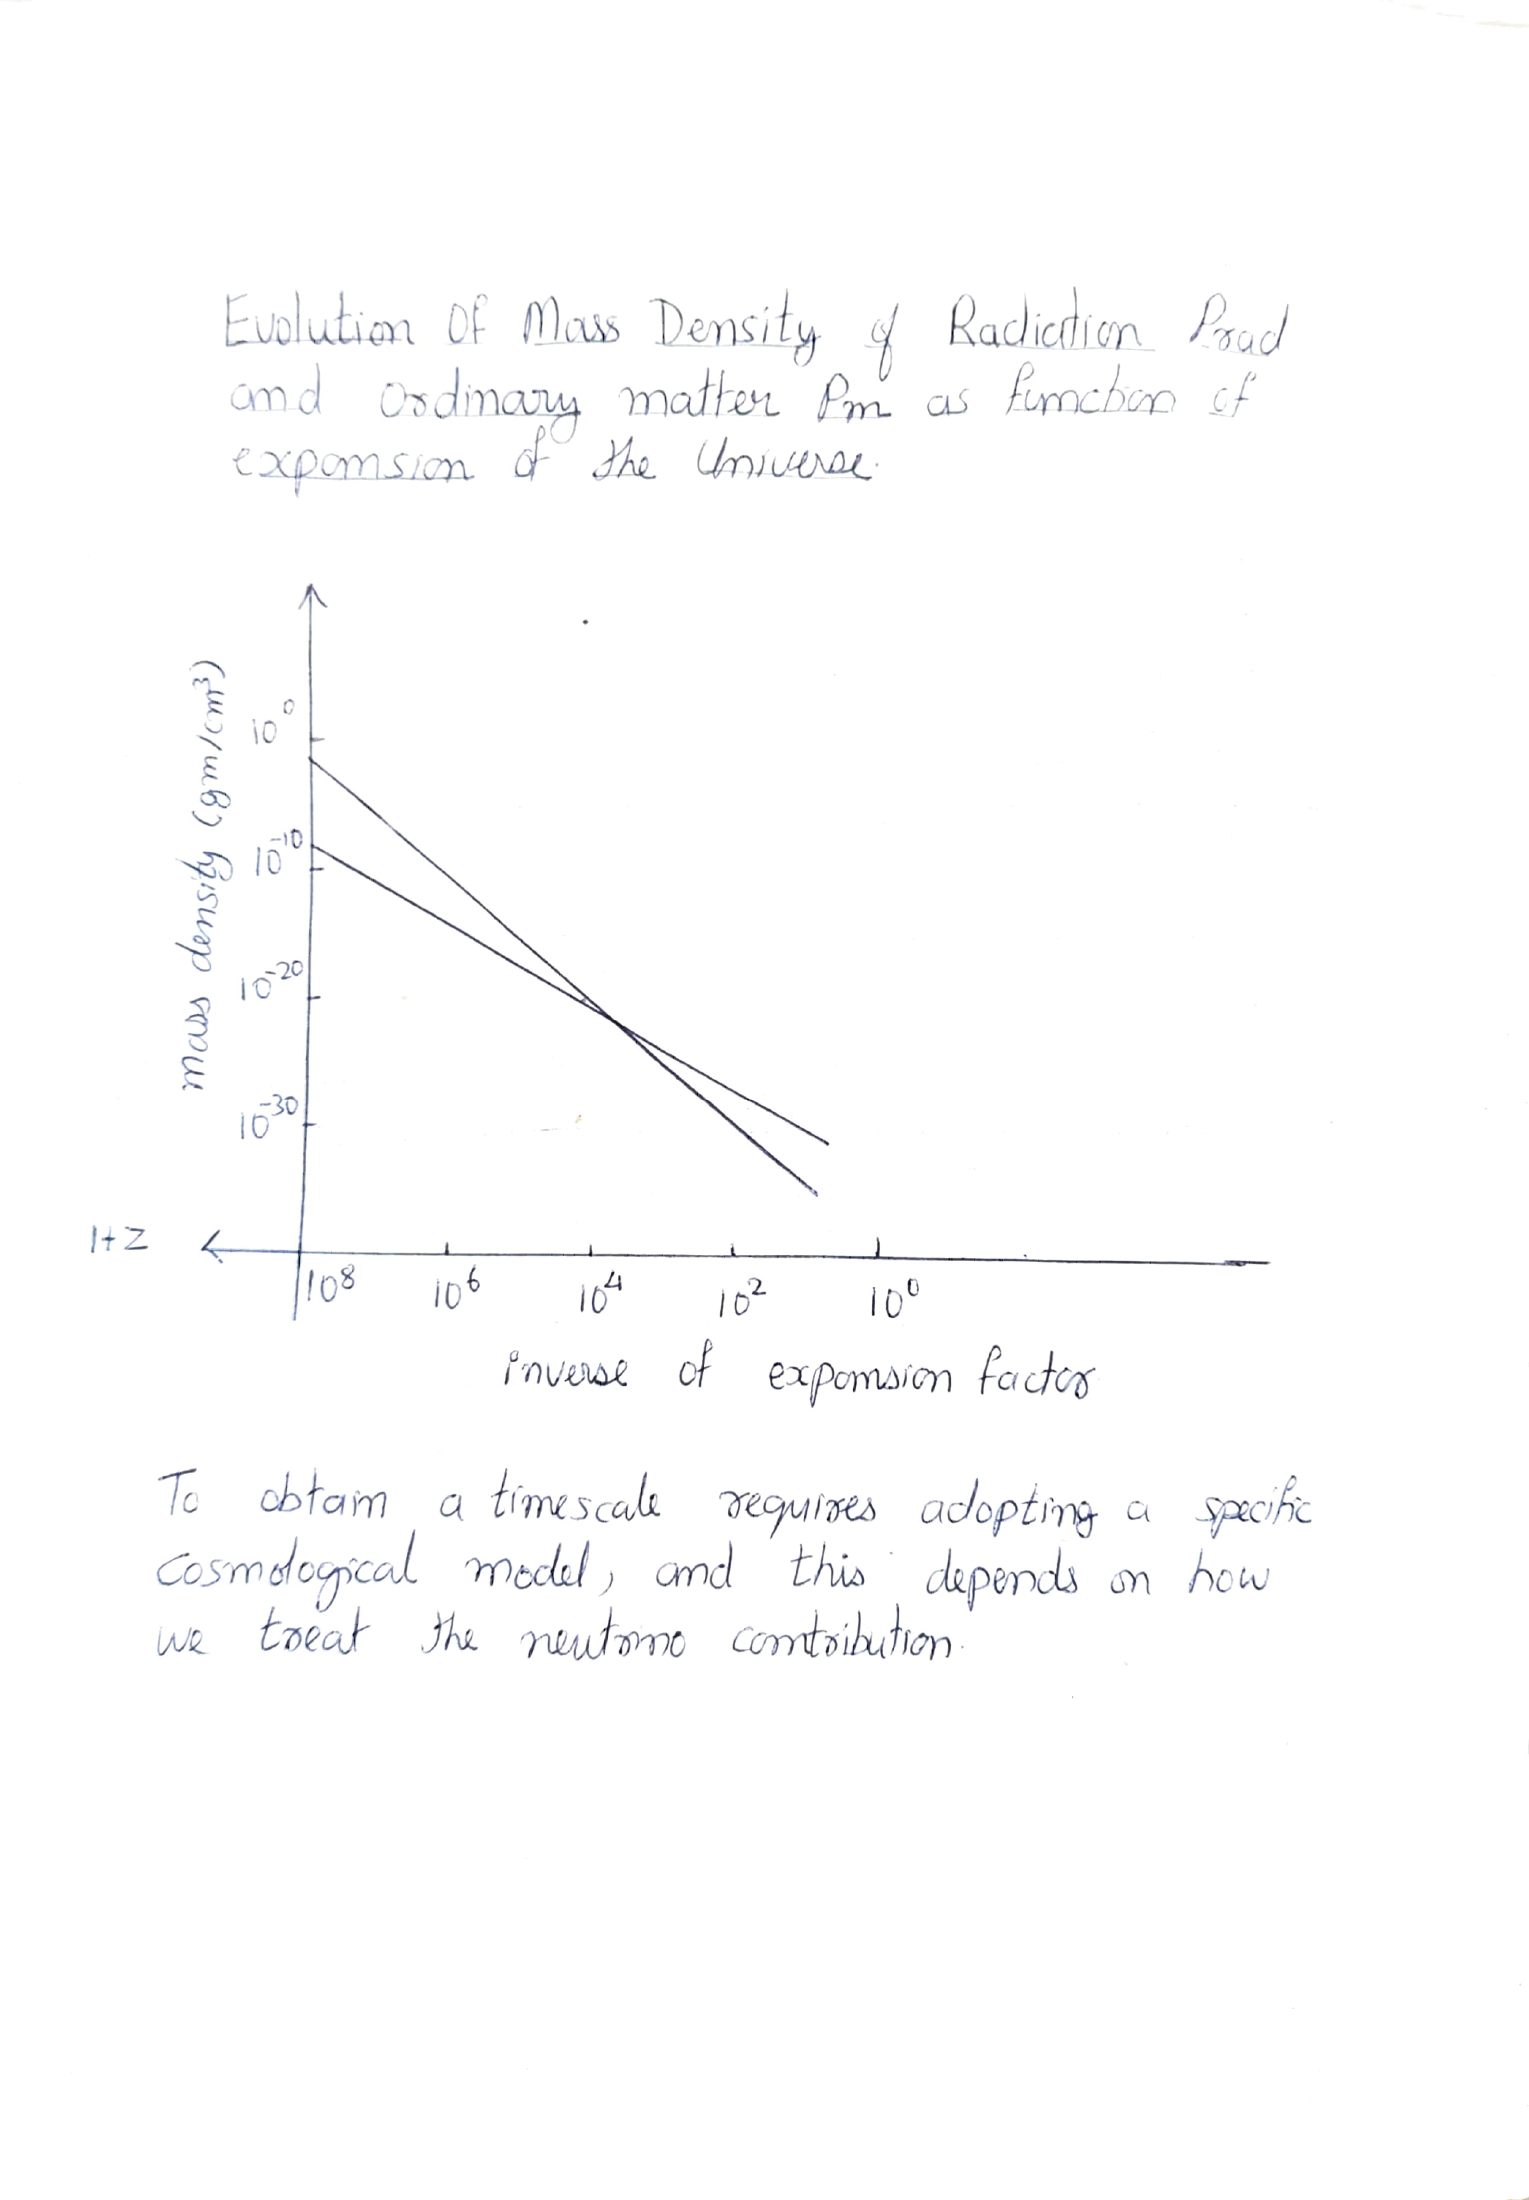 Evolution Of Mass Density of Radiation Prad
and Ordinary matter Pm as function of
expansion of the Universe.
mass density (gm/cm³)
10⁰
10⁻¹⁰
10⁻²⁰
10⁻³⁰
1+z
10⁸ 10⁶ 10⁴ 10² 10⁰
inverse of expansion factor
To obtain a timescale requires adopting a specific
cosmological model, and this depends on how
we treat the neutrino contribution.